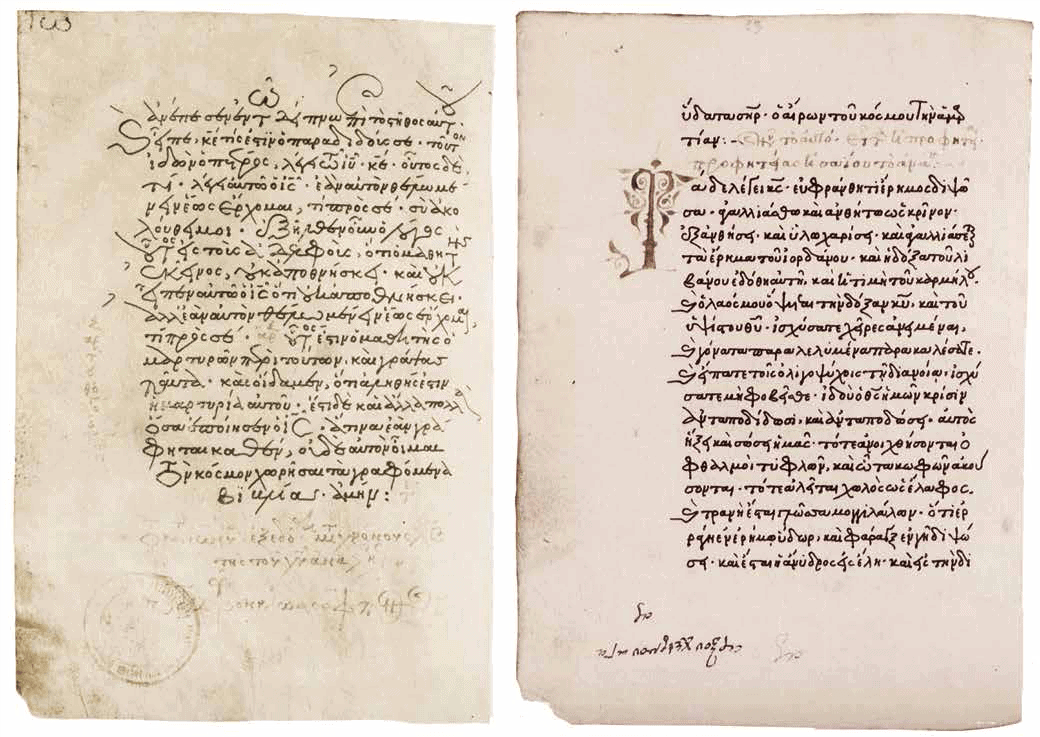 ἀνέπεσεν ἐν τῷ δείπνῳ ἐπὶ τὸ στῆθος αὐτοῦ
εἶπε, κε τίς ἐστιν ὁ παραδιδούς σε· τοῦτον
ἰδὼν ὁ πέτρος, λέγει τῷ ιυ· κε· οὗτος δὲ
τί· λέγει αὐτῷ ὁ ις· ἐὰν αὐτὸν θέλω μέ
νειν ἕως ἔρχομαι, τί πρὸς σέ· σὺ ἀκο
λούθει μοι· ἐξῆλθεν οὖν ὁ λόγος
οὗτος εἰς τοὺς ἀδελφούς, ὅτι ὁ μαθητὴς
ἐκεῖνος, οὐκ ἀποθνήσκει· καὶ οὐκ
εἶπεν αὐτῷ ὁ ις ὅτι οὐκ ἀποθνήσκει·
ἀλλ ἐὰν αὐτὸν θέλω μένειν ἕως ἔρχομαι,
τί πρὸς σέ· οὗτός ἐστιν ὁ μαθητὴς ὁ
μαρτυρῶν περὶ τούτων, καὶ γράψας
ταῦτα· καὶ οἴδαμεν, ὅτι ἀληθής ἐστιν
ἡ μαρτυρία αὐτοῦ· ἔστι δὲ καὶ ἄλλα πολλὰ
ὅσα ἐποίησεν ὁ ις· ἅτινα ἐὰν γρά
φηται καθ ἕν, οὐδὲ αὐτὸν οἶμαι
τὸν κόσμον χωρῆσαι τὰ γραφόμενα
βιβλία· ἀμήν:
ὕδατα σηρ· ὁ αἴρων τοῦ κόσμου τὴν ἁμαρ
τίαν:
προφητείας ἡσαΐου τὸ ἀνάγνωσμα
Τάδε λέγει κς· εὐφράνθητι ἔρημος διψῶ
σα· ἀγαλλιάσθω καὶ ἀνθήτω ὡς κρίνον·
ἐξανθήσει καὶ ὑλοχαρήσει· καὶ ἀγαλλιάσεται
τὰ ἔρημα τοῦ ἰορδάνου· καὶ ἡ δόξα τοῦ λι
βάνου ἐδόθη αὐτῇ, καὶ ἡ τιμὴ τοῦ καρμήλου
ὁ λαός μου ὄψεται τὴν δόξαν κυ, καὶ τοῦ
ὑψίστου θυ· ἰσχύσατε χεῖρες ἀνειμέναι,
γόνατα παραλελυμένα παρακαλέσατε·
εἴπατε τοῖς ὀλιγοψύχοις τῇ διανοίᾳ· ἰσχύ
σατε μὴ φοβεῖσθε· ἰδοὺ ὁ θς ἡμῶν κρίσιν
ἀνταποδίδωσι, καὶ ἀνταποδώσει· αὐτὸς
ἥξει καὶ σώσει ἡμᾶς· τότε ἀνοιχθήσονται ὀ
φθαλμοὶ τυφλῶν, καὶ ὦτα κωφῶν ἀκού
σονται· τότε ἁλεῖται χωλὸς ὡς ἔλαφος·
τρανὴ ἔσται γλῶσσα μογγιλάλων· ὅτι ἐρ
ράγη ἐν ἐρήμῳ ὕδωρ, καὶ φάραγξ ἐν γῇ διψώ
σῃ· καὶ ἔσται ἡ ἄνυδρος εἰς ἕλη· καὶ εἰς τὴν δι